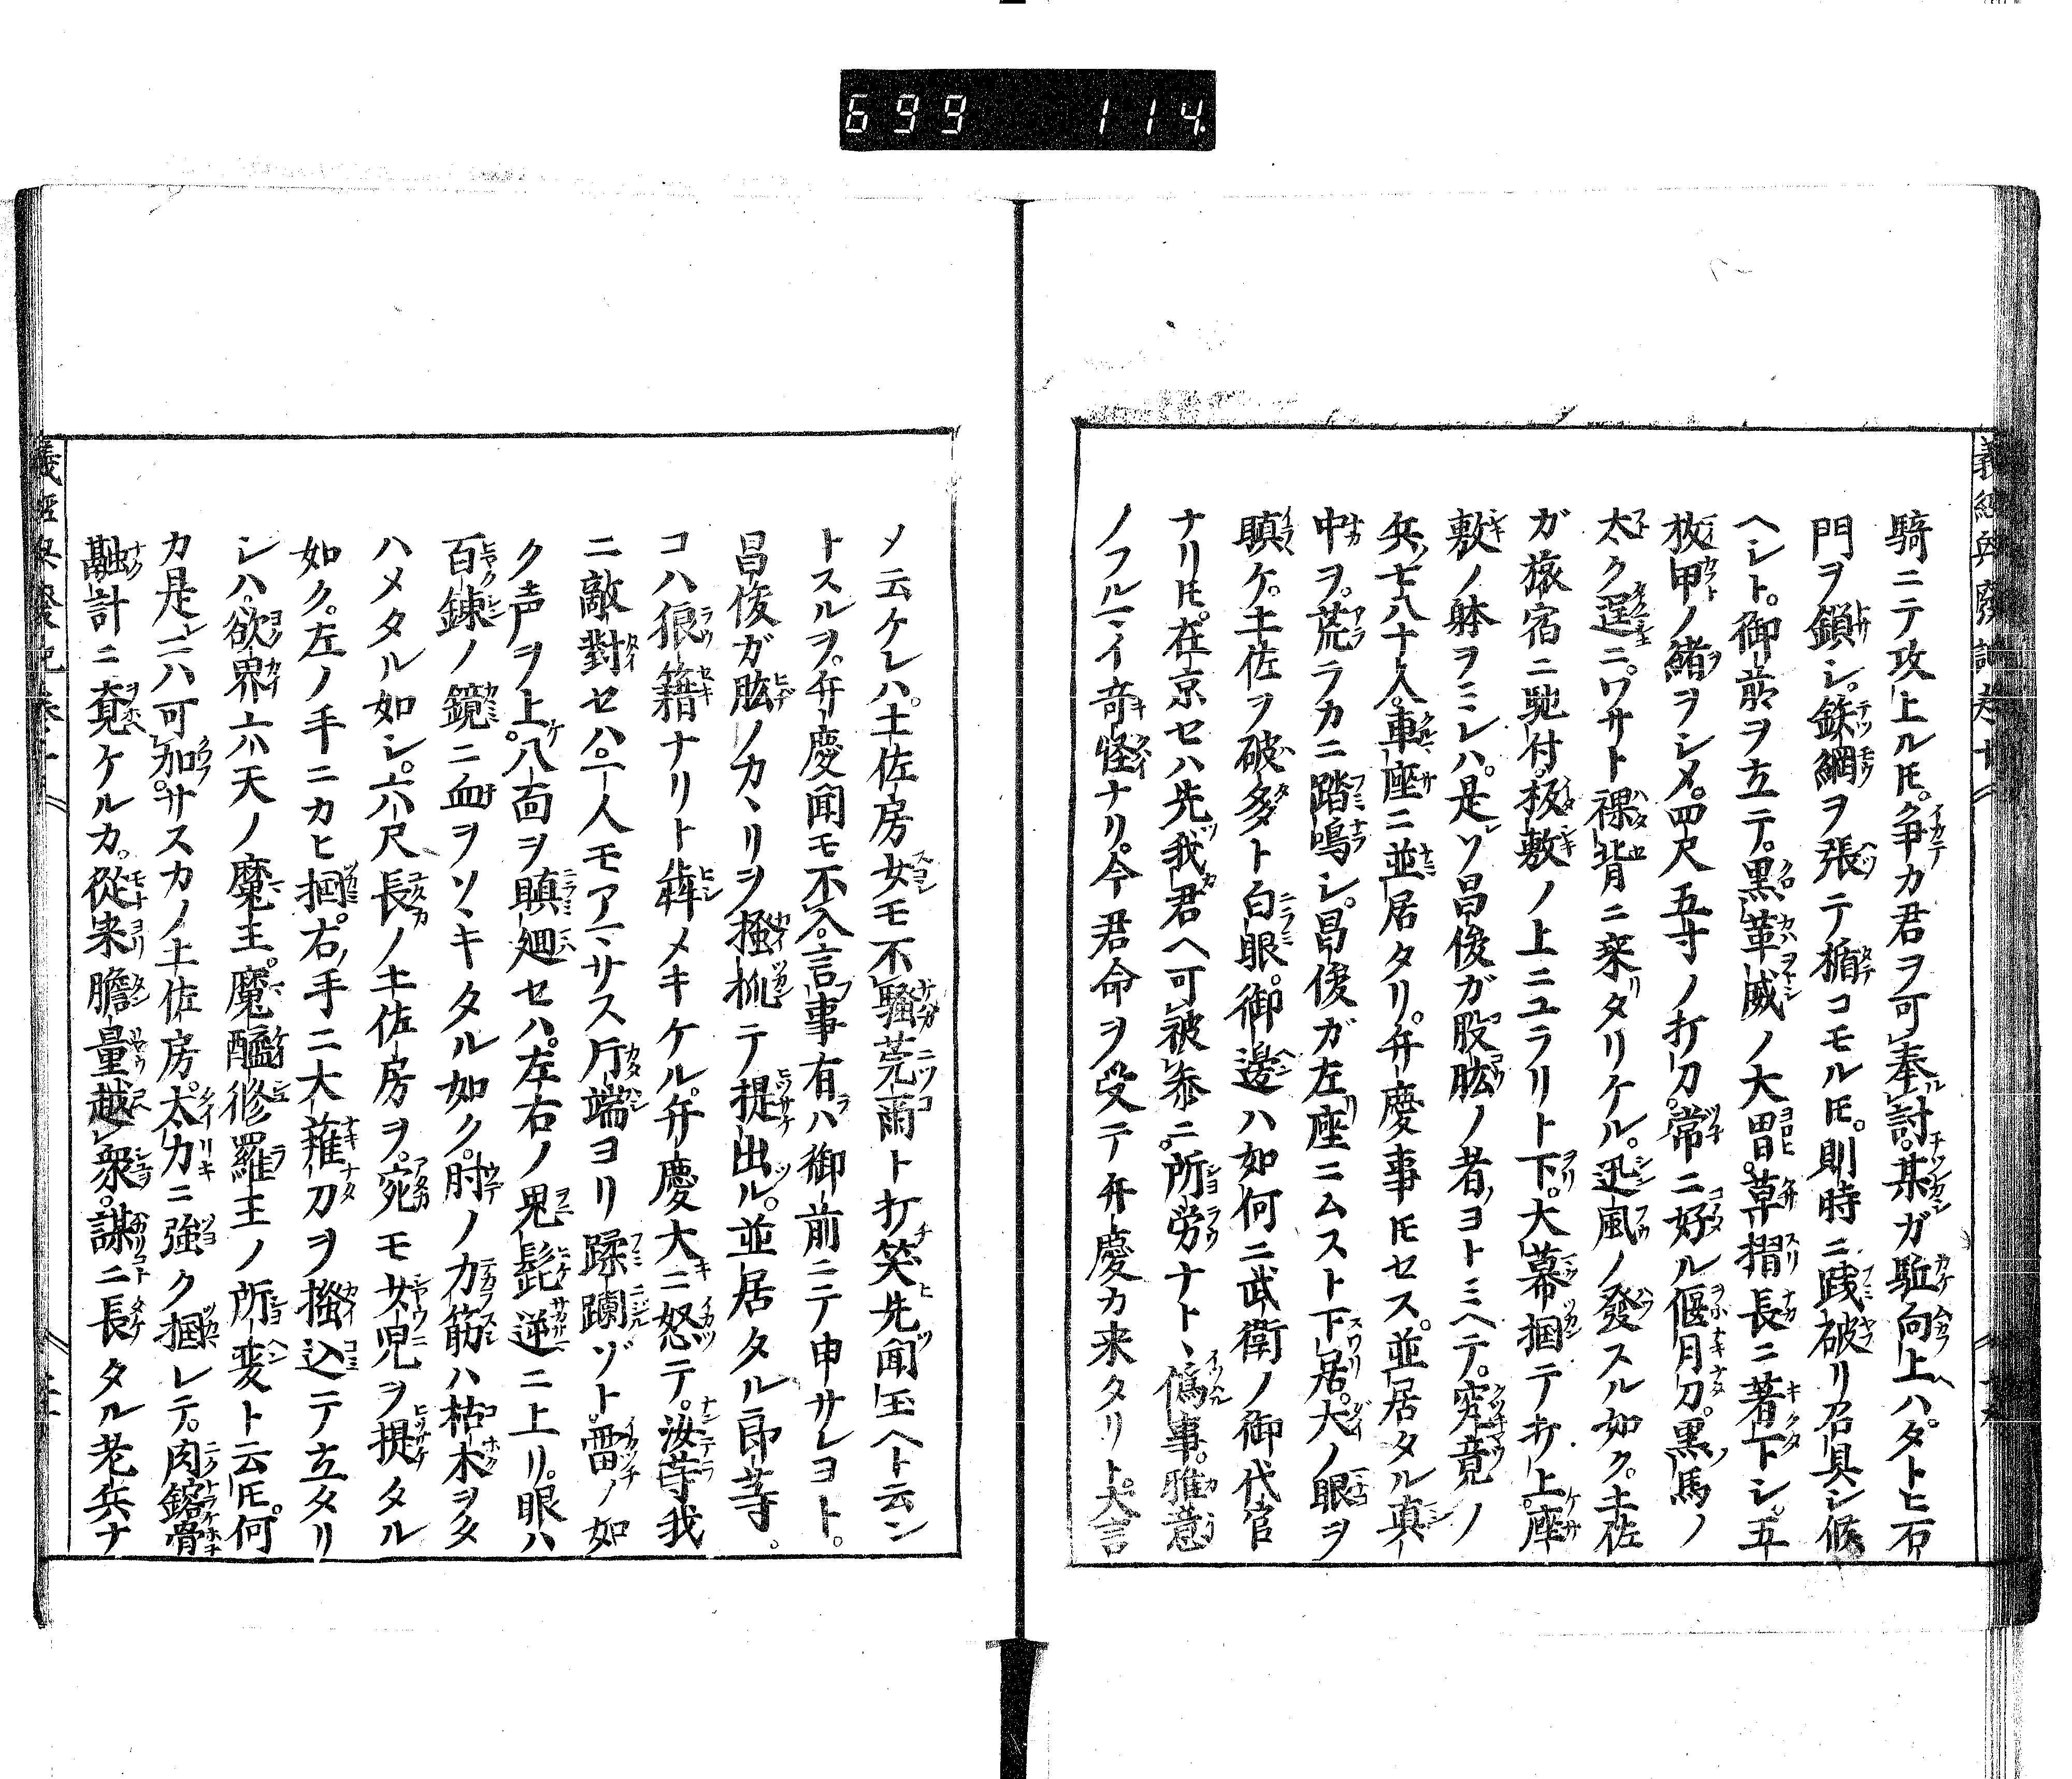 699 114.
騎ニテ攻上ル𪜈。争カ君ヲ可奉討。某ガ駈向上ハ。タトヒ石
門ヲ鎖シ。鉄網ヲ張テ楯コモル𪜈。則時ニ践破リ召具シ候
ヘシト。御前ヲ立テ。黒革威ノ大冑。草摺長ニ著下シ。五
枚甲ノ緒ヲシメ。四尺五寸ノ打刀。常ニ好ル偃月刀。黒馬ノ
太ク逞ニ。ワサト裸背ニ乗タリケル。迅風ノ發スル如ク。土佐
ガ旅宿ニ馳付。板敷ノ上ニユラリト下。大幕掴テ打上。座
敷ノ躰ヲミレハ。是ソ昌俊ガ股肱ノ者ノヨトミヘテ。究竟ノ
兵ノ七八十人。車座ニ並居タリ。弁慶事𪜈セス。並居タル真
中ヲ。荒ラカニ踏鳴シ。昌俊ガ左座ニムスト下居。大ノ眼ヲ
瞋ケ。土佐ヲ破多ト白眼。御邊ハ如何ニ武衛ノ御代官
ナリ𪜈。在京セハ先我君ヘ可被参ニ。所労ナト、偽事。雅意
ノフルマイ奇怪ナリ。今君命ヲ受テ弁慶カ来タリト。大言
メ云ケレハ。土佐房女モ不騒莞爾ト打笑先聞玉ヘト云ン
トスルヲ。弁慶聞モ不入。言事有ハ御前ニテ申サレヨト。
昌俊ガ肱ノカヽリヲ掻抓テ提出ル。並居タル郎等。
コハ狼籍ナリト犇メキケル。弁慶大ニ怒テ。汝等我
ニ敵對セハ。一人モアマサス片端ヨリ蹂躙ゾト。雷ノ如
ク声ヲ上。八面ヲ瞋廻セハ。左右ノ鬼髭逆ニ上リ。眼ハ
百錬ノ鏡ニ血ヲソヽキタル如ク。肘ノ力筋ハ枯木ヲタ
ハメタル如シ。六尺長ノ土佐房ヲ。宛モ少児ヲ提タル
如ク。左ノ手ニカヒ掴。右ノ手ニ大薙刀ヲ掻込テ立タリ
シハ。欲界六天ノ魔王。魔醯修羅王ノ所変ト云𪜈。何
カ是ニハ可加。サスカノ土佐房。太力ニ強ク掴レテ。肉鎔骨
融計ニ覚ケルカ。従来膽量越衆。謀ニ長タル老兵ナ